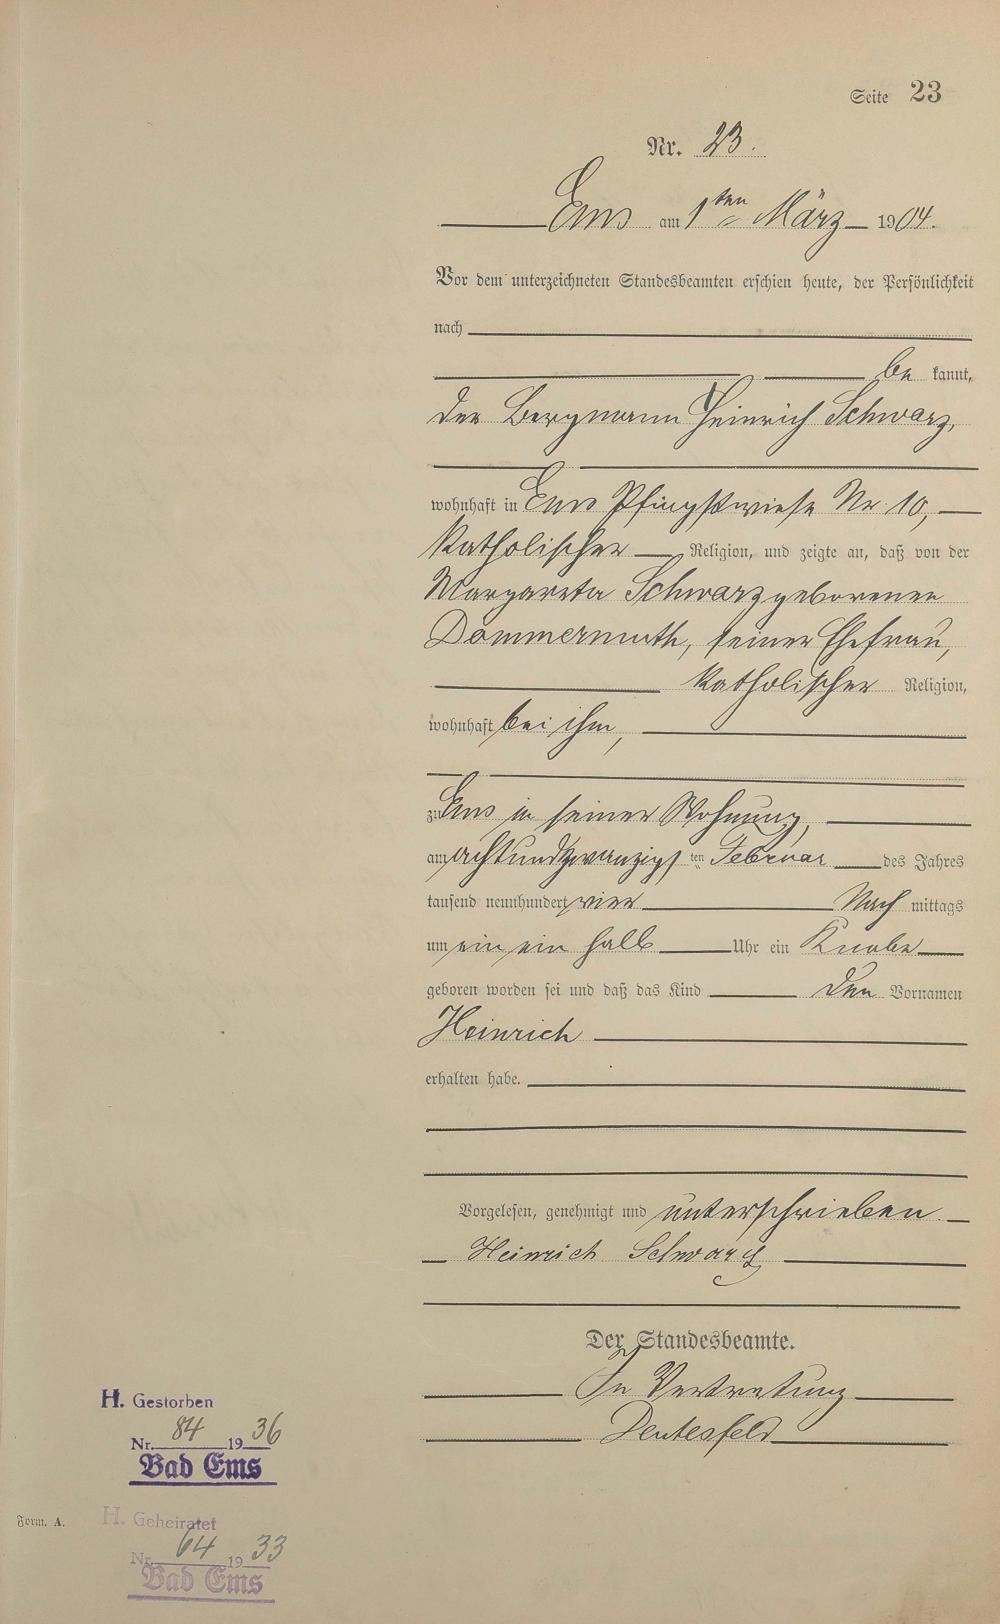 Seite 23
Nr. 23.
Ems am 1ten März 1904.
Vor dem unterzeichneten Standesbeamten erschien heute, der Persönlichkeit
nach
be kannt,
der Bergmann Heinrich Schwarz,
wohnhaft in Ems Pfingstwiese Nr. 10,
katholischer Religion, und zeigte an, daß von der
Margareta Schwarz geborenen
Dommermuth, seiner Ehefrau,
katholischer Religion,
wohnhaft bei ihm,
zu Ems in seiner Wohnung,
am achtundzwanzigsten Februar des Jahres
tausend neunhundert vier Nach mittags
um ein ein halb Uhr ein Knabe
geboren worden sei und daß das Kind den Vornamen
Heinrich
erhalten habe.
Vorgelesen, genehmigt und unterschrieben
Heinrich Schwarz
Der Standesbeamte.
In Vertretung
H. Gestorben
Nr. 84 1936
Bad Ems
Form. A.
H. Geheiratet
Nr. 64 1933
Bad Ems